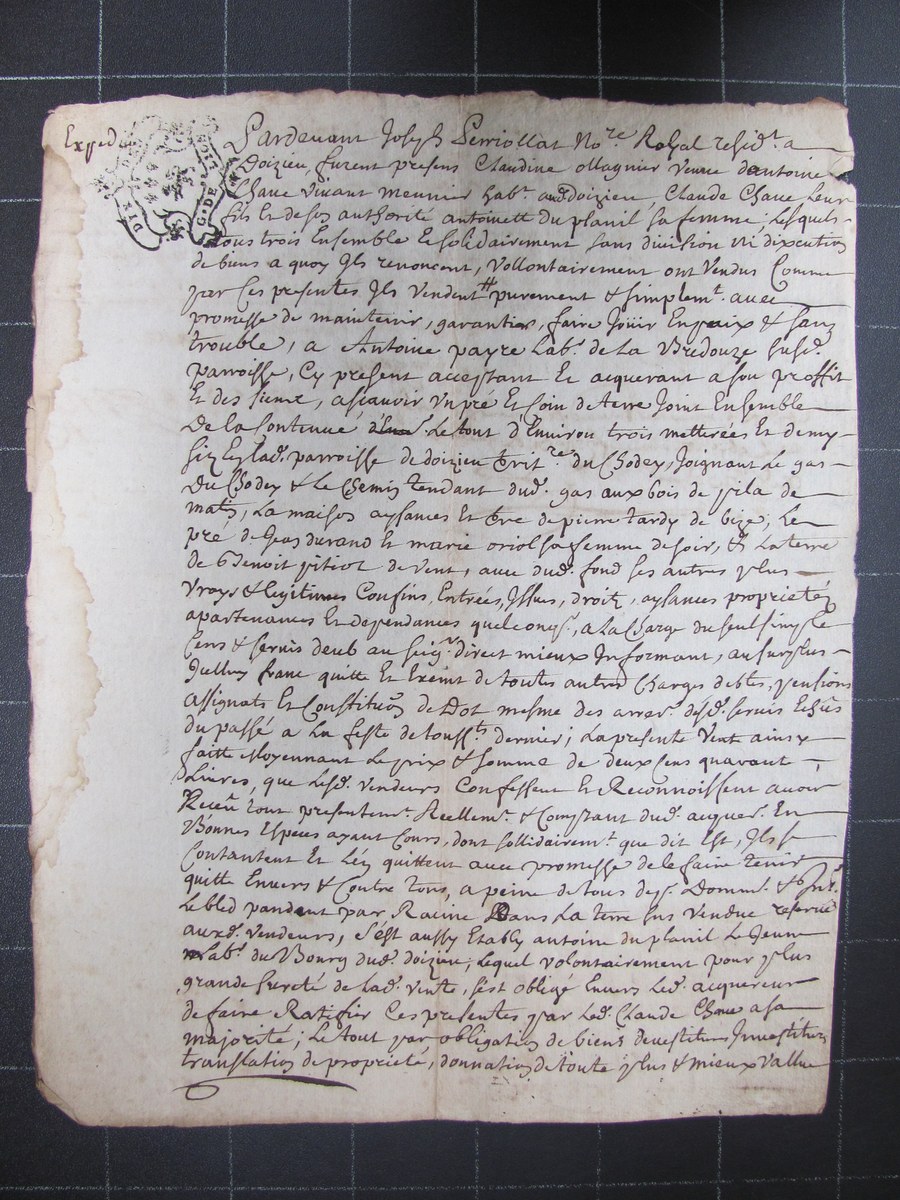 Expedié
DIX
G. DE LION
Pardevant Joseph Perriollat No.re Royal resid.t a
Doizieu furent presens Claudine ollagnier veuve dantoine
Chave vivant meunier hab.t aud. doizieu, Claude Chave leur
fils Et de son authorité antoinette du planil sa femme, lesquels
tous trois Ensemble Et solidairement sans division ni dixcution
de biens a quoy Ils renoncent, vollontairement ont vendus Comme
par Ces presentes Ils vendent purement & simplem.t avec
promesse de maintenir, garantir, faire Joüir En paix & sans
trouble, a Antoine payre Lab.r de la Bredouze susd.e
parroisse, Cy present acceptant Et acquerant a son proffit
Et des siens, ascavoir un pré Et Coin de terre Joint Ensemble
De la Contenue Le tout d'Environ trois metterées Et demy
size En lad. parroisse de doizieu territ.re du Chodey, Joignant Le gas
Du Chodey & Le Chemin tendant dud. gas aux bois de pila de
matin, La maison aysances Et t.re de pierre tardy de bize, Le
pré de Jean durand Et marie oriol sa femme de soir, Et La terre
de Benoit pitiot de vent, avec dud. fond ses autres plus
vrays & legitimes Confins, Entrées, Issues, droitz, aysances proprietéz
apartenances Et dependances quelconq.s, a La Charge du seul simple
Cens & servis deub au seig.r direct mieux Informant, au surplus
Iceluy franc quitte Et Exeint de toutes autres Charges debtes, pensions
assignats Et Constitu.on de Dot mesme des arrer.s desd. servis Echus
du passé a La feste de touss.ts dernier; La presente vente ainsy
faitte Moyennant Le prix & somme de deux Cens quarante
Livres, que Lesd. vendeurs Confessent Et Reconnoissent avoir
Receu tout presentem.t Reellem.t & Comptant dud. acquer.r En
Bonnes Especes ayant Cours, dont sollidairem.t que dit Est, Ils se
Contantent Et L'en quittent avec promesse de le faire tenir
quitte Envers & Contre tous, a peine de tous desp.s Domm.s & Int.s
Le bled pandant par Racine Dans La terre sus vendue reservé
auxd. vendeurs, s'est aussy Etably antoine du planil Le Jeune
Lab.r du Bourg dud. doizieu, Lequel volontairement pour plus
grande sureté de Lad. vente, s'est obligé Envers Led. acquereur
de faire Ratifier Ces presentes par Led. Claude Chave a sa
majorité; Le tout par obligation de biens devestiture Investiture
translation de proprieté, donnation de toute plus & mieux vallue